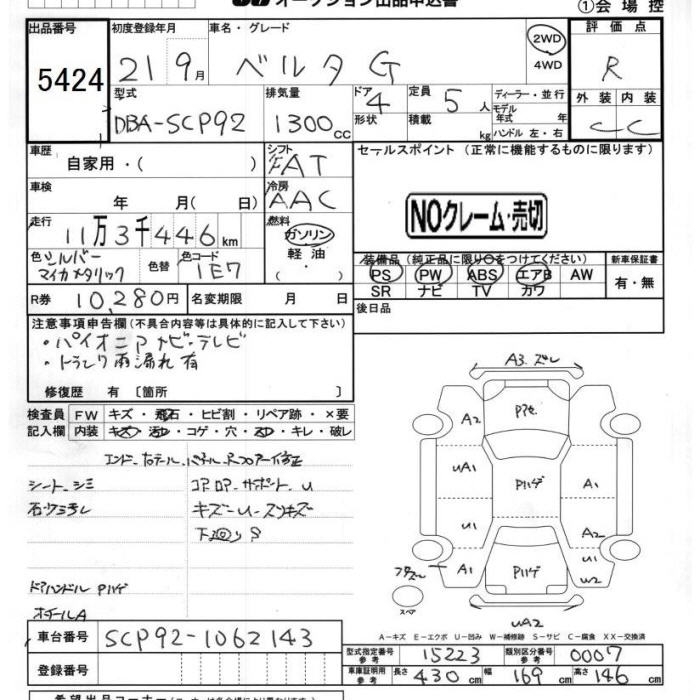 オークション出品申込書
①会場控
出品番号 初度登録年月 車名・グレード 2WD 評価点
5424 21 9月 ベルタ G 4WD R
型式 排気量 ドア 4 定員 5人 ディーラー・並行 外装 内装
DBA-SCP92 1300cc 形状 積載 kg モデル年式 年 ハンドル 左・右 C C
車歴 自家用・( ) シフト FAT セールスポイント (正常に機能するものに限ります)
車検 年 月( 日) 冷房 AAC
NOクレーム・売切
走行 11万3千446km 燃料 ガソリン 軽油
色 シルバーマイカメタリック 色替 色コード 1E7
装備品 (純正品に限り○をつけてください) 新車保証書
PS PW ABS エアB AW 有・無
SR ナビ TV カワ
R券 10,280円 名変期限 月 日 後日品
注意事項申告欄 (不具合内容等は具体的に記入して下さい)
・パイオニアナビ・テレビ
・トランク雨漏れ有
修復歴 有 〔箇所 〕
検査員 FW キズ・飛石・ヒビ割・リペア跡・×要
記入欄 内装 キズ・汚・コゲ・穴・スレ・キレ・破レ
シート、シミ コアロアサポートu
キズ-u-スリキズ
下廻りS
ドアハンドルPハゲ
オイルA
A3.ズレ
A2
uA1 Pハゲ A1
u1 A2
A1 Pハゲ u1
w2
スペア
uA2
A-キズ E-エクボ U-凹み W-補修跡 S-サビ C-腐食 XX-交換済
車台番号 SCP92-1062143
型式指定番号 参考 15223 類別区分番号 参考 0007
登録番号
車庫証明用 参考 長さ 430cm 幅 169cm 高さ 146cm
希望出品コーナー